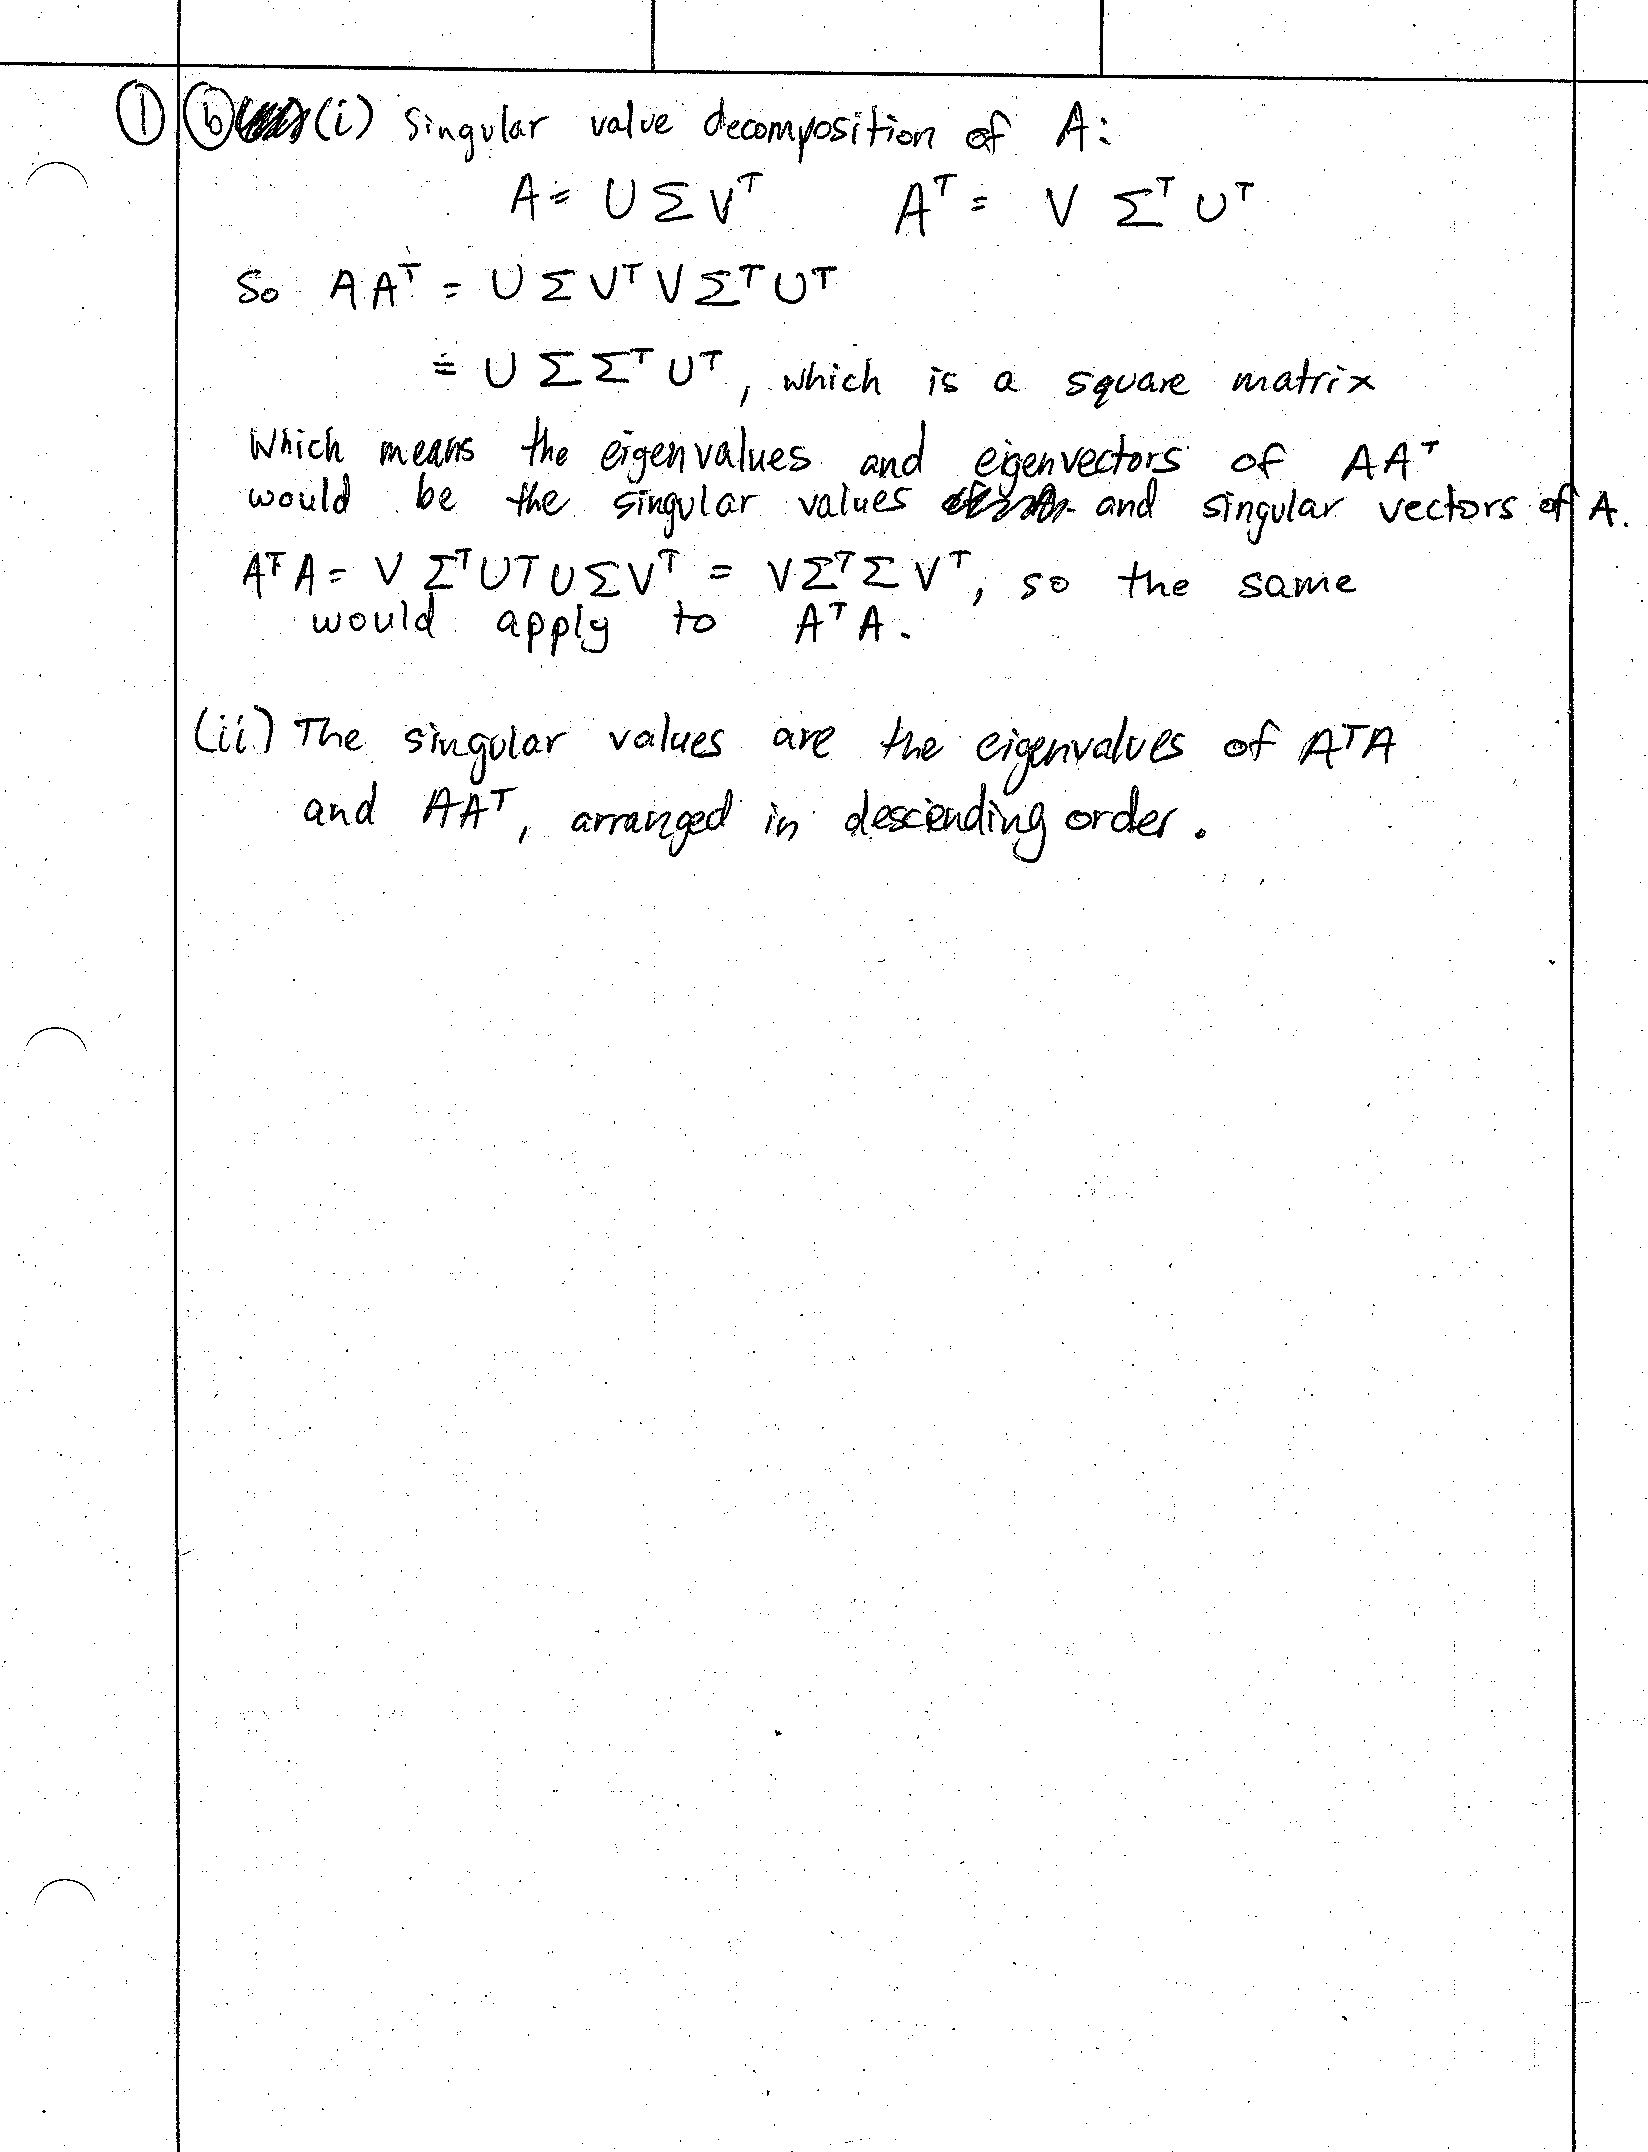 ① ⓑ (i) Singular value decomposition of A:
A = U Σ Vᵀ Aᵀ = V Σᵀ Uᵀ
So A Aᵀ = U Σ Vᵀ V Σᵀ Uᵀ
= U Σ Σᵀ Uᵀ, which is a square matrix
Which means the eigenvalues and eigenvectors of A Aᵀ
would be the singular values and singular vectors of A.
Aᵀ A = V Σᵀ Uᵀ U Σ Vᵀ = V Σᵀ Σ Vᵀ, so the same
would apply to Aᵀ A.
(ii) The singular values are the eigenvalues of AᵀA
and AAᵀ, arranged in descending order.